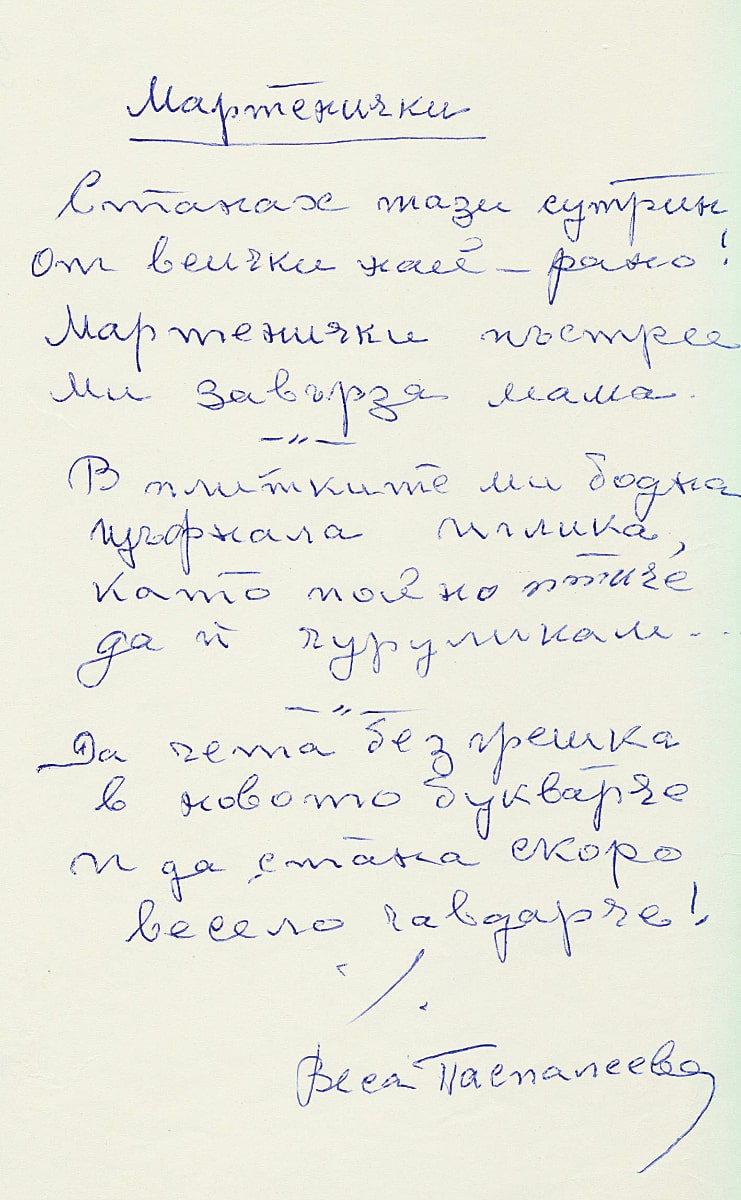 Мартенички
Станах тази сутрин
От всички най – рано!
Мартенички пъстрее
ми завърза мама.
–„–
В плитките ми бодна
цъфнала иглика,
като пойно птиче
да й чуруликам...
–„–
Да чета без грешка
в новото букварче
и да стана скоро
весело чавдарче!
·/.
Веса Паспалеева